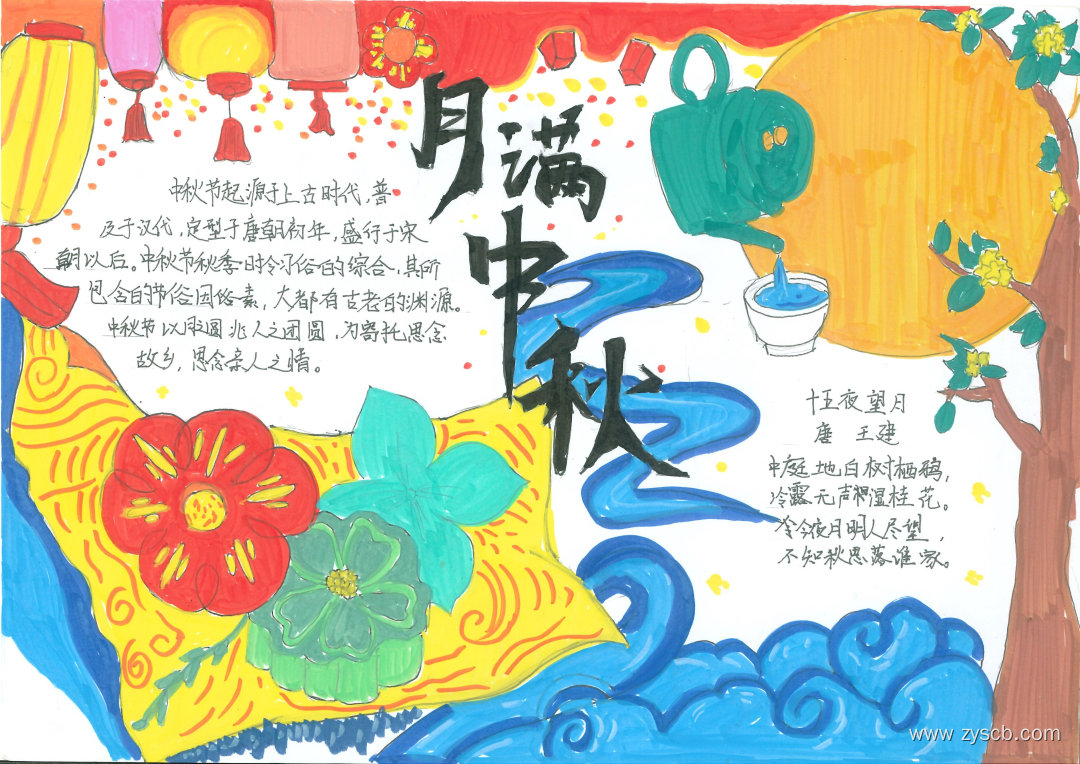 月满中秋
中秋节起源于上古时代,普
及于汉代,定型于唐朝初年,盛行于宋
朝以后。中秋节秋季时令习俗的综合,其所
包含的节俗因络素,大都有古老的渊源。
中秋节以月圆兆人之团圆,为寄托思念
故乡,思念亲人之情。
十五夜望月
唐 王建
中庭地白树栖鸦,
冷露无声湿桂花。
今夜月明人尽望,
不知秋思落谁家。
www.zyscb.com